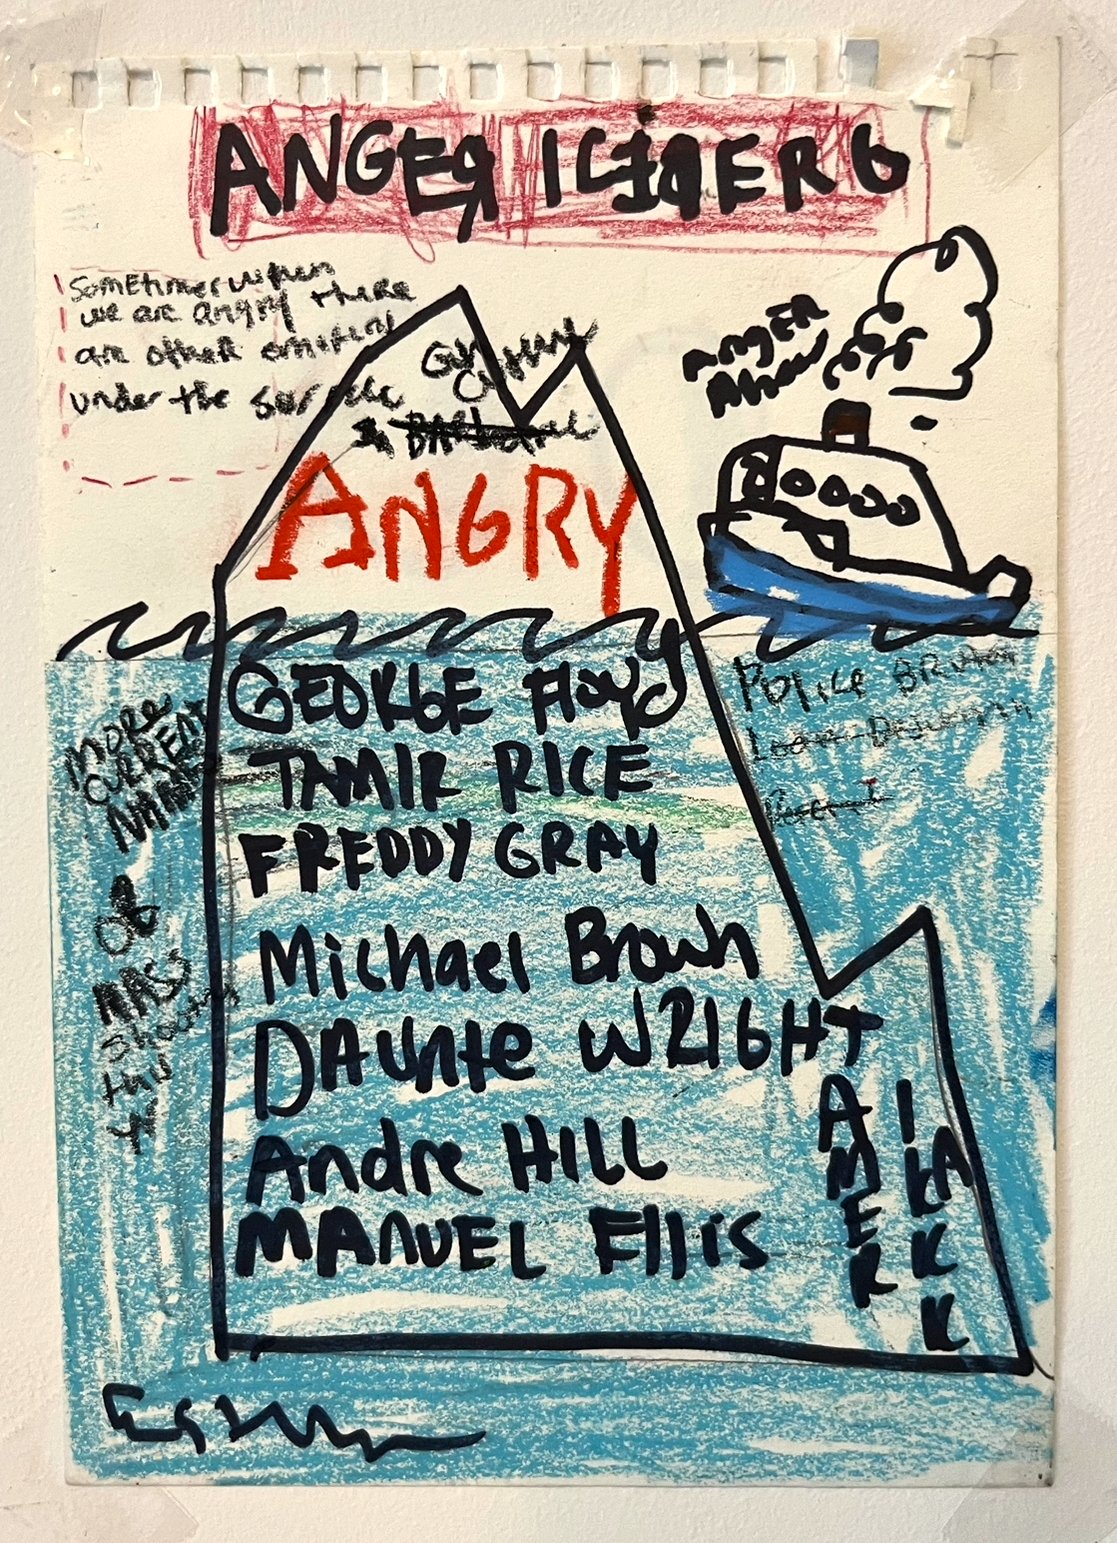 ANGER ICEBERG
Sometimes when
we are angry there
are other emotions
under the surface
ANGER
Ahoy
GUN
CULTURE
ANGRY
GEORGE Floyd
TAMIR RICE
FREDDY GRAY
Michael Brown
DAUNTE WRIGHT
Andre HILL
MANUEL Ellis
POLICE BRUTALITY
MORE
CURRENT
NAMES
OF
MASS
Shooting
this
yr
AMER